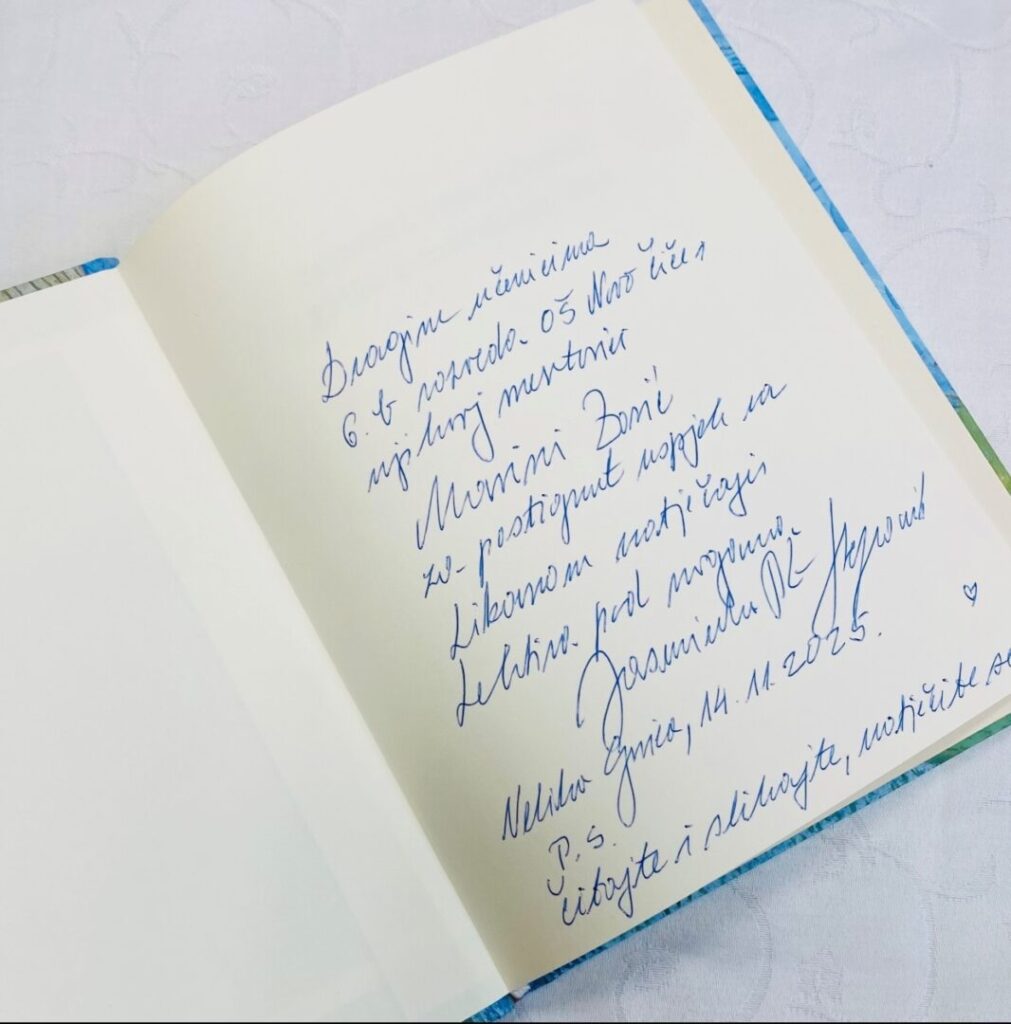 Dragim učenicima
6. b razreda OŠ Novo Čiče i
njihovoj mentorici
Marini Zorić
za postignut uspjeh na
Likovnom natječaju
Lektira pod nogama.
Jasminka
Velika Gorica, 14.11.2025.
P.S.
Čitajte i slikajte, natječite se